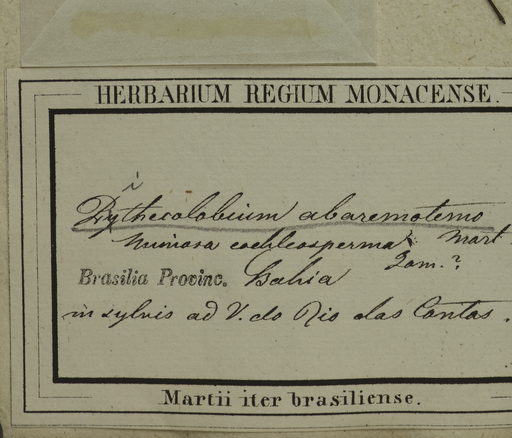 HERBARIUM REGIUM MONACENSE.
i
Pythecolobium abaremotemo
Mimosa cochleosperma Mart.
Gom.?
Brasilia Provinc. Bahia
in sylvis ad V. do Rio das Contas.
Martii iter brasiliense.